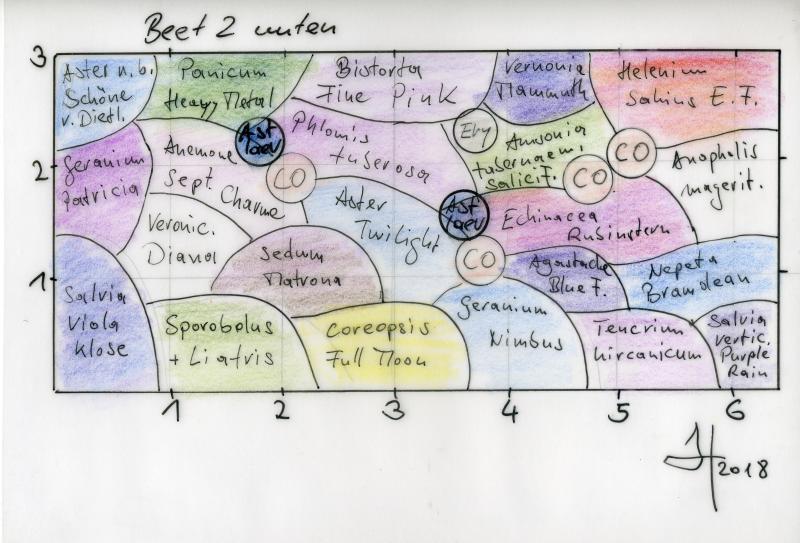 Beet 2 unten
3
Aster n.b.
Schöne
v. Dietl.
Panicum
Heavy Metal
Bistorta
Fine Pink
Vernonia
Mammuth
Helenium
Sahins E.F.
2
Geranium
Patricia
Anemone
Sept. Charme
Ast
laev
CO
Phlomis
tuberosa
Ery
Amsonia
tabernaem.
salicif.
CO
CO
Anaphalis
margerit.
Veronic.
Diana
Aster
Twilight
Ast
laev
Echinacea
Rubinstern
1
Sedum
Matrona
CO
Agastache
Blue F.
Nepeta
Bramdean
Salvia
Viola
Klose
Sporobolus
+ Liatris
Coreopsis
Full Moon
Geranium
Nimbus
Teucrium
hircanicum
Salvia
vertic.
Purple
Rain
1 2 3 4 5 6
2018